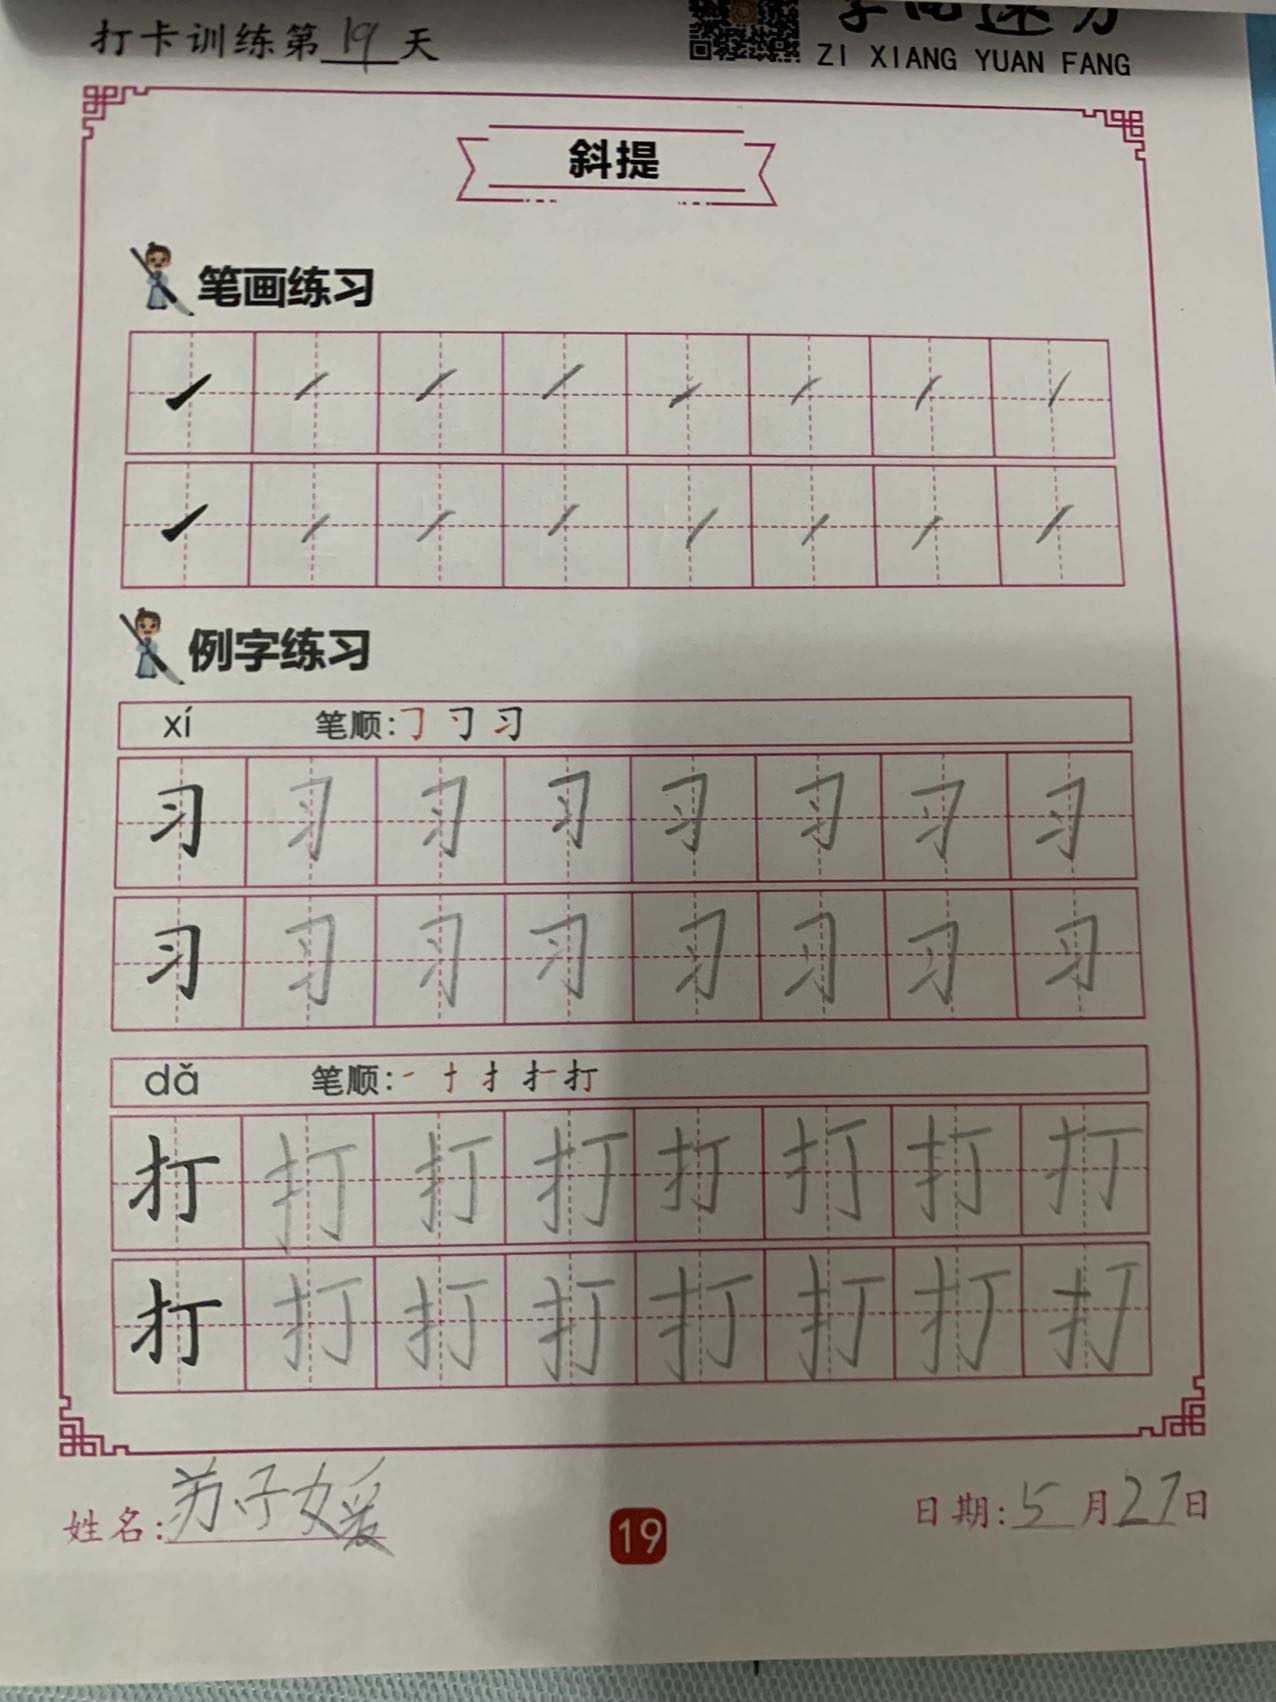 打卡训练第19天
ZI XIANG YUAN FANG
斜提
笔画练习
例字练习
xí 笔顺:
习 习 习 习 习 习 习 习
习 习 习 习 习 习 习 习
dǎ 笔顺:一 十 扌 扌 打
打 打 打 打 打 打 打 打
打 打 打 打 打 打 打 打
姓名:苏子媛
19
日期:5月27日